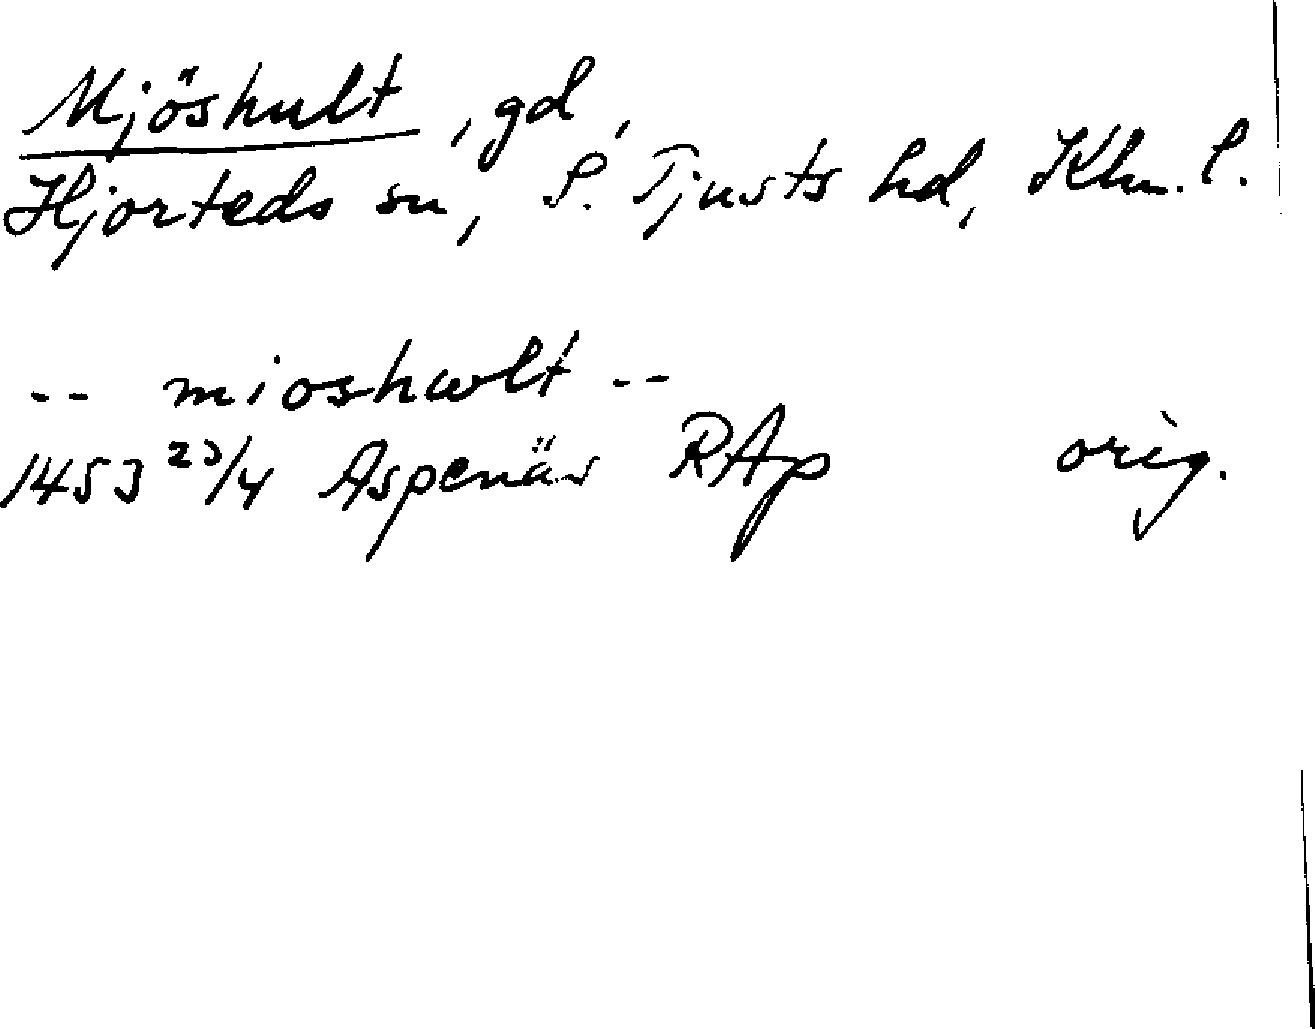 Mjöshult, gd,
Hjorteds sn, S. Tjusts hd, Klm. l.
-- mioshwlt --
1453 23/4 Aspenäs RAp orig.